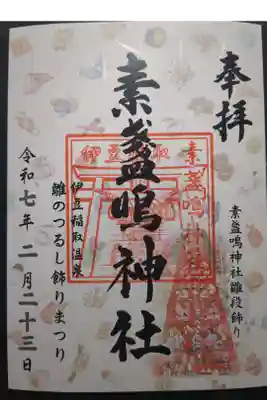 奉拝
素盞嗚神社雛段飾り
素盞嗚神社
伊豆稲取
素盞嗚神社
伊豆稲取温泉
雛のつるし飾りまつり
令和七年二月二十三日